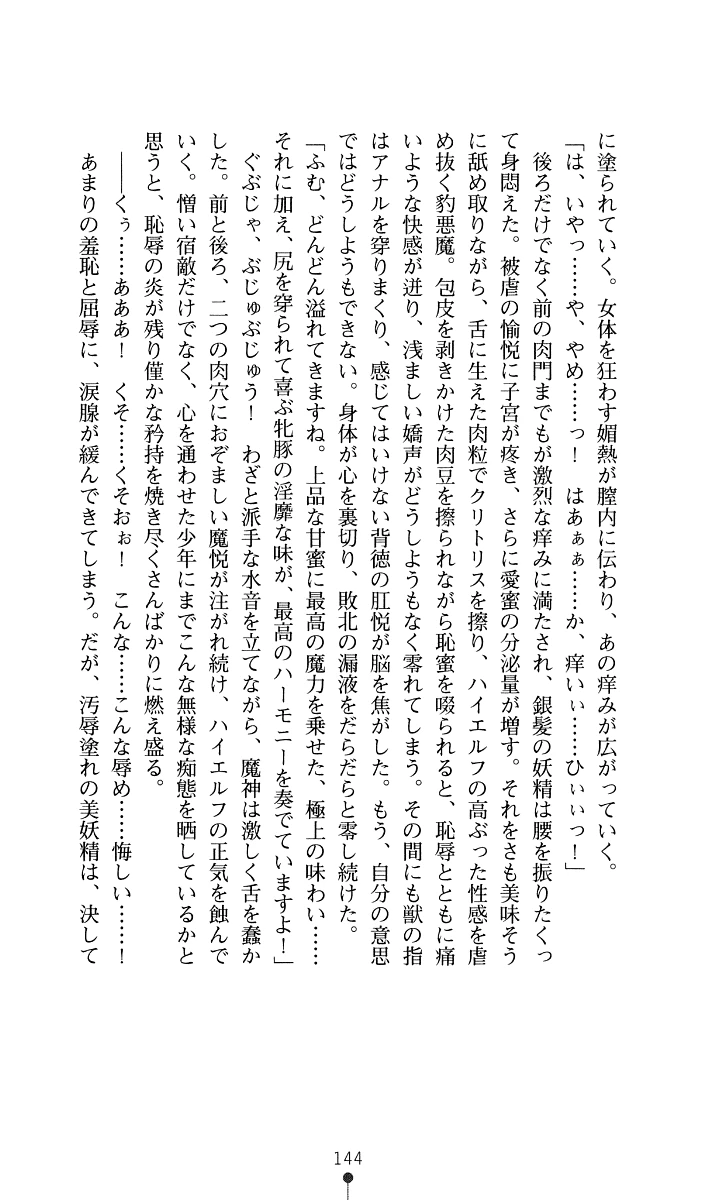 に塗られていく。女体を狂わす媚熱が膣内に伝わり、あの痒みが広がっていく。
「は、いやっ……や、やめ……っ！　はあぁぁ……か、痒いぃ……ひぃぃっ！」
　後ろだけでなく前の肉門までもが激烈な痒みに満たされ、銀髪の妖精は腰を振りたくっ
て身悶えた。被虐の愉悦に子宮が疼き、さらに愛蜜の分泌量が増す。それをさも美味そう
に舐め取りながら、舌に生えた肉粒でクリトリスを擦り、ハイエルフの高ぶった性感を虐
め抜く豹悪魔。包皮を剥きかけた肉豆を擦られながら恥蜜を啜られると、恥辱とともに痛
いような快感が迸り、浅ましい嬌声がどうしようもなく零れてしまう。その間にも獣の指
はアナルを穿りまくり、感じてはいけない背徳の肛悦が脳を焦がした。もう、自分の意思
ではどうしようもできない。身体が心を裏切り、敗北の漏液をだらだらと零し続けた。
「ふむ、どんどん溢れてきますね。上品な甘蜜に最高の魔力を乗せた、極上の味わい……
それに加え、尻を穿られて喜ぶ牝豚の淫靡な味が、最高のハーモニーを奏でていますよ！」
　ぐぶじゃ、ぶじゅぶじゅう！　わざと派手な水音を立てながら、魔神は激しく舌を蠢か
した。前と後ろ、二つの肉穴におぞましい魔悦が注がれ続け、ハイエルフの正気を蝕んで
いく。憎い宿敵だけでなく、心を通わせた少年にまでこんな無様な痴態を晒しているかと
思うと、恥辱の炎が残り僅かな矜持を焼き尽くさんばかりに燃え盛る。
　――くぅ……あああ！　くそ……くそおぉ！　こんな……こんな辱め……悔しい……！
　あまりの羞恥と屈辱に、涙腺が緩んできてしまう。だが、汚辱塗れの美妖精は、決して
144